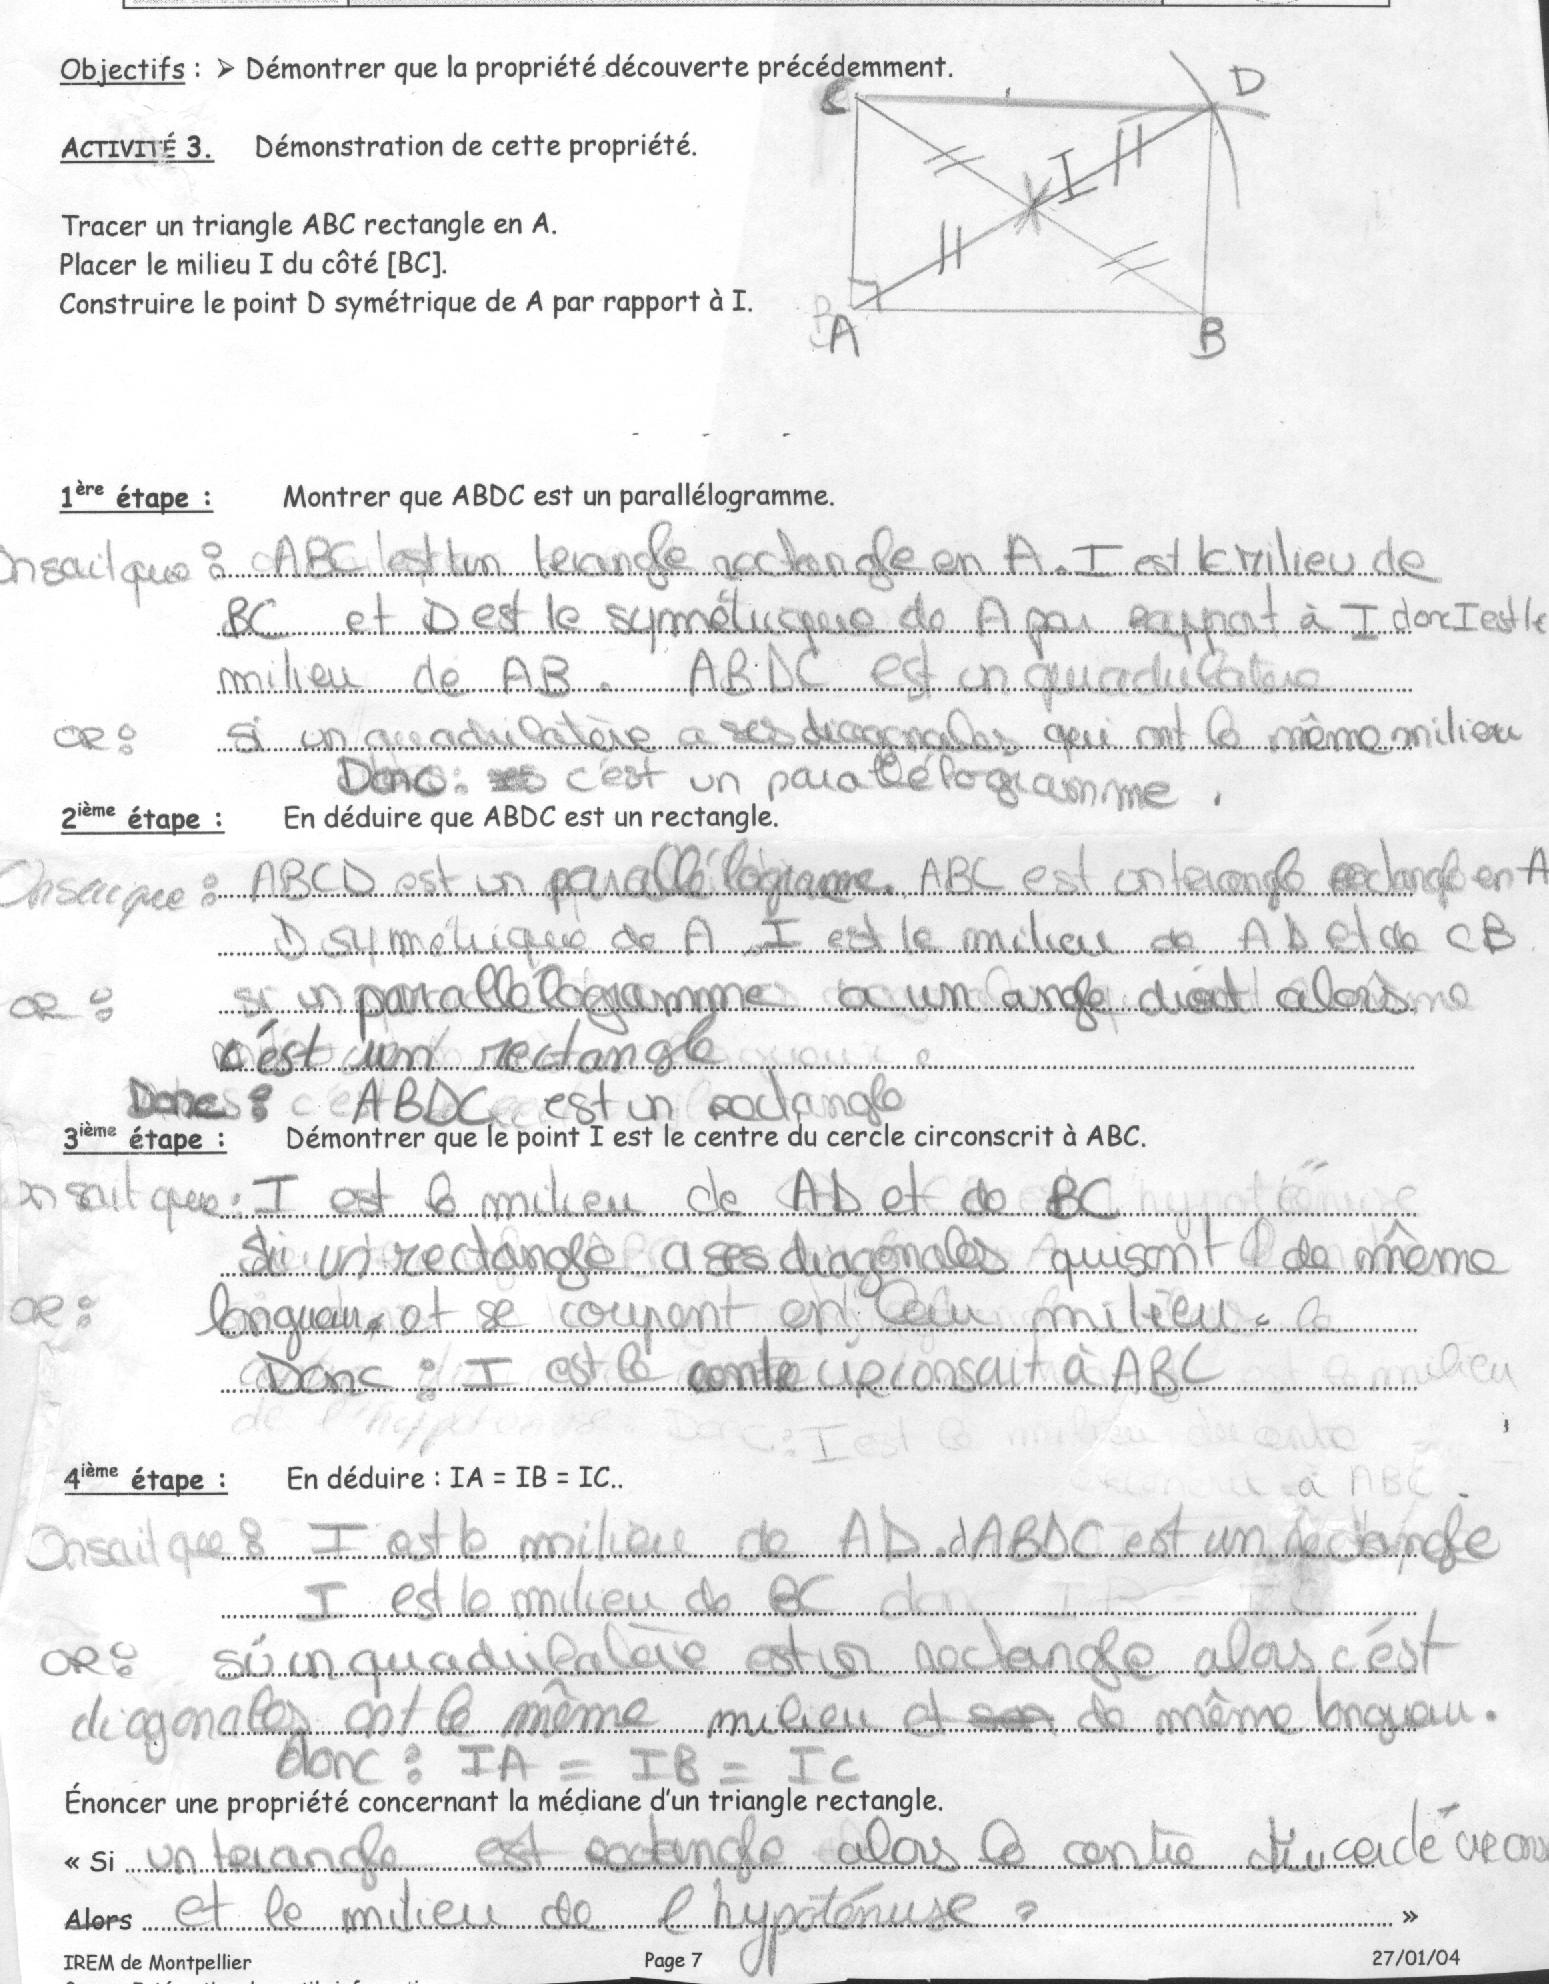 Objectifs : ➢ Démontrer que la propriété découverte précédemment.
C D
ACTIVITÉ 3. Démonstration de cette propriété.
I
Tracer un triangle ABC rectangle en A.
Placer le milieu I du côté [BC].
Construire le point D symétrique de A par rapport à I.
A B
1ère étape : Montrer que ABDC est un parallélogramme.
On sait que : ABC est un terangle rectangle en A. I est le milieu de
BC et D est le symétrique de A par rapport à I donc I est le
milieu de AB. ABDC est un quadrilatère
OR : si un quadrilatère a ses diagonales qui ont le même milieu
Donc : c'est un parallélogramme.
2ième étape : En déduire que ABDC est un rectangle.
On sait que : ABCD est un parallélograme. ABC est un terangle rectangle en A
D symétrique de A. I est le milieu de AD et de CB.
OR : si un parallélogramme a un angle droit alors
c'est un rectangle
Donc : ABDC est un rectangle
3ième étape : Démontrer que le point I est le centre du cercle circonscrit à ABC.
On sait que : I est le milieu de AD et de BC
Si un rectangle a ses diagonales qui sont de même
OR : longueur et se coupent en leur milieu.
Donc : I est le centre circonscrit à ABC
de l'hyppoténuse Donc : I est le milieu du centre
à ABC.
4ième étape : En déduire : IA = IB = IC..
On sait que : I est le milieu de AD. ABDC est un rectangle
I est le milieu de BC donc IB = IC
OR : si un quadrilatère est un rectangle alors c'est
diagonales ont le même milieu et de même longueur.
donc : IA = IB = IC
Énoncer une propriété concernant la médiane d'un triangle rectangle.
« Si un terangle est rectangle alors le centre du cercle circons
Alors et le milieu de l'hypoténuse. »
IREM de Montpellier Page 7 27/01/04